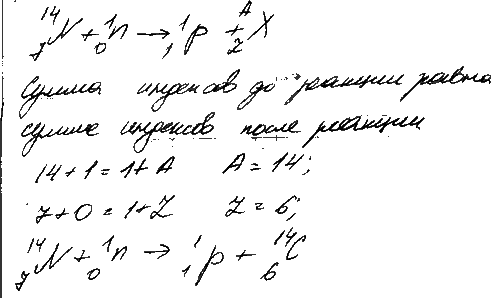 ¹⁴₇N + ¹₀n → ¹₁p + ᴬ_Z X
Сумма индексов до реакции равна
сумме индексов после реакции
14+1=1+A A=14;
7+0=1+Z Z=6;
¹⁴₇N + ¹₀n → ¹₁p + ¹⁴₆C